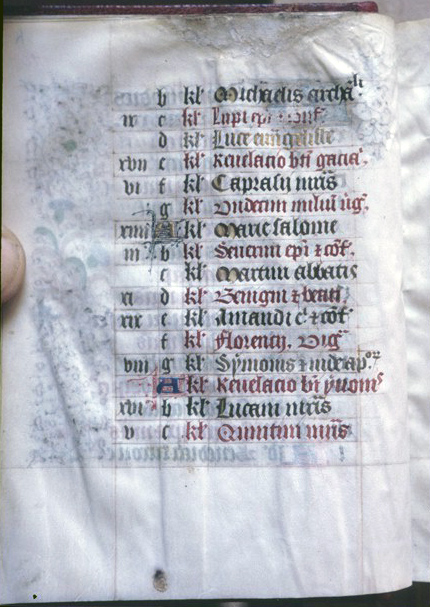 b kl' Michaelis archa
iv c kl' Lupi epi
d kl' Luce
xvii e kl' Revelacio bti
vi f kl' Caprasij mris
g kl' Undecim miliū ūg
xiiii A kl' Marie salome
iii b kl' Severini epi z cōf.
c kl' Martini abbatis
xi d kl' Benigni z
xix e kl' Amandi z cōf
f kl' Florencij.
viii g kl' Symonis z iude ap
A kl' Revelacio bi
xvi b kl' Lucani mris
v c kl' Quintini mris